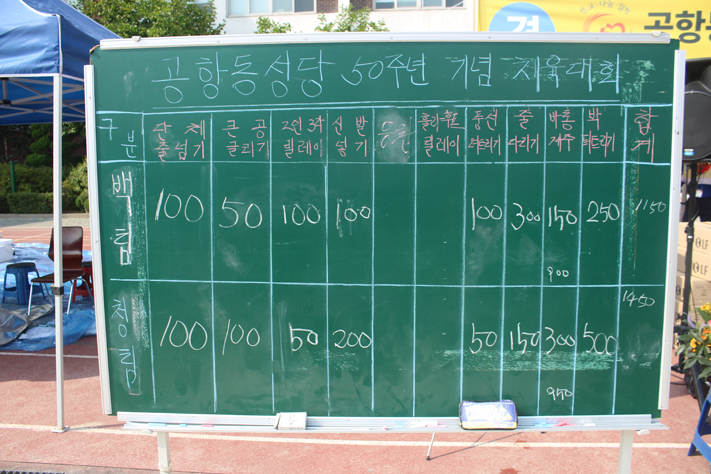 경
공항동
공항동성당 50주년 기념 체육대회
구분 단체 줄넘기 큰 공 굴리기 2인 3각 릴레이 신발 넣기 훌라후프 릴레이 풍선 터트리기 줄 다리기 바톤 계주 박 터트리기 합계
백팀 100 50 100 100 100 300 150 250 1150
900
청팀 100 100 50 200 50 150 300 500 1450
950